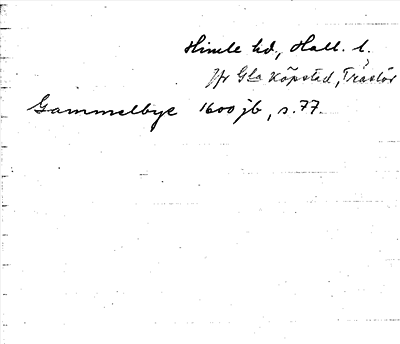 Himle hd, Hall. l.
Jfr Gla Köpsted, Träslöv
?
Gammelbye 1600 jb, s. 77.